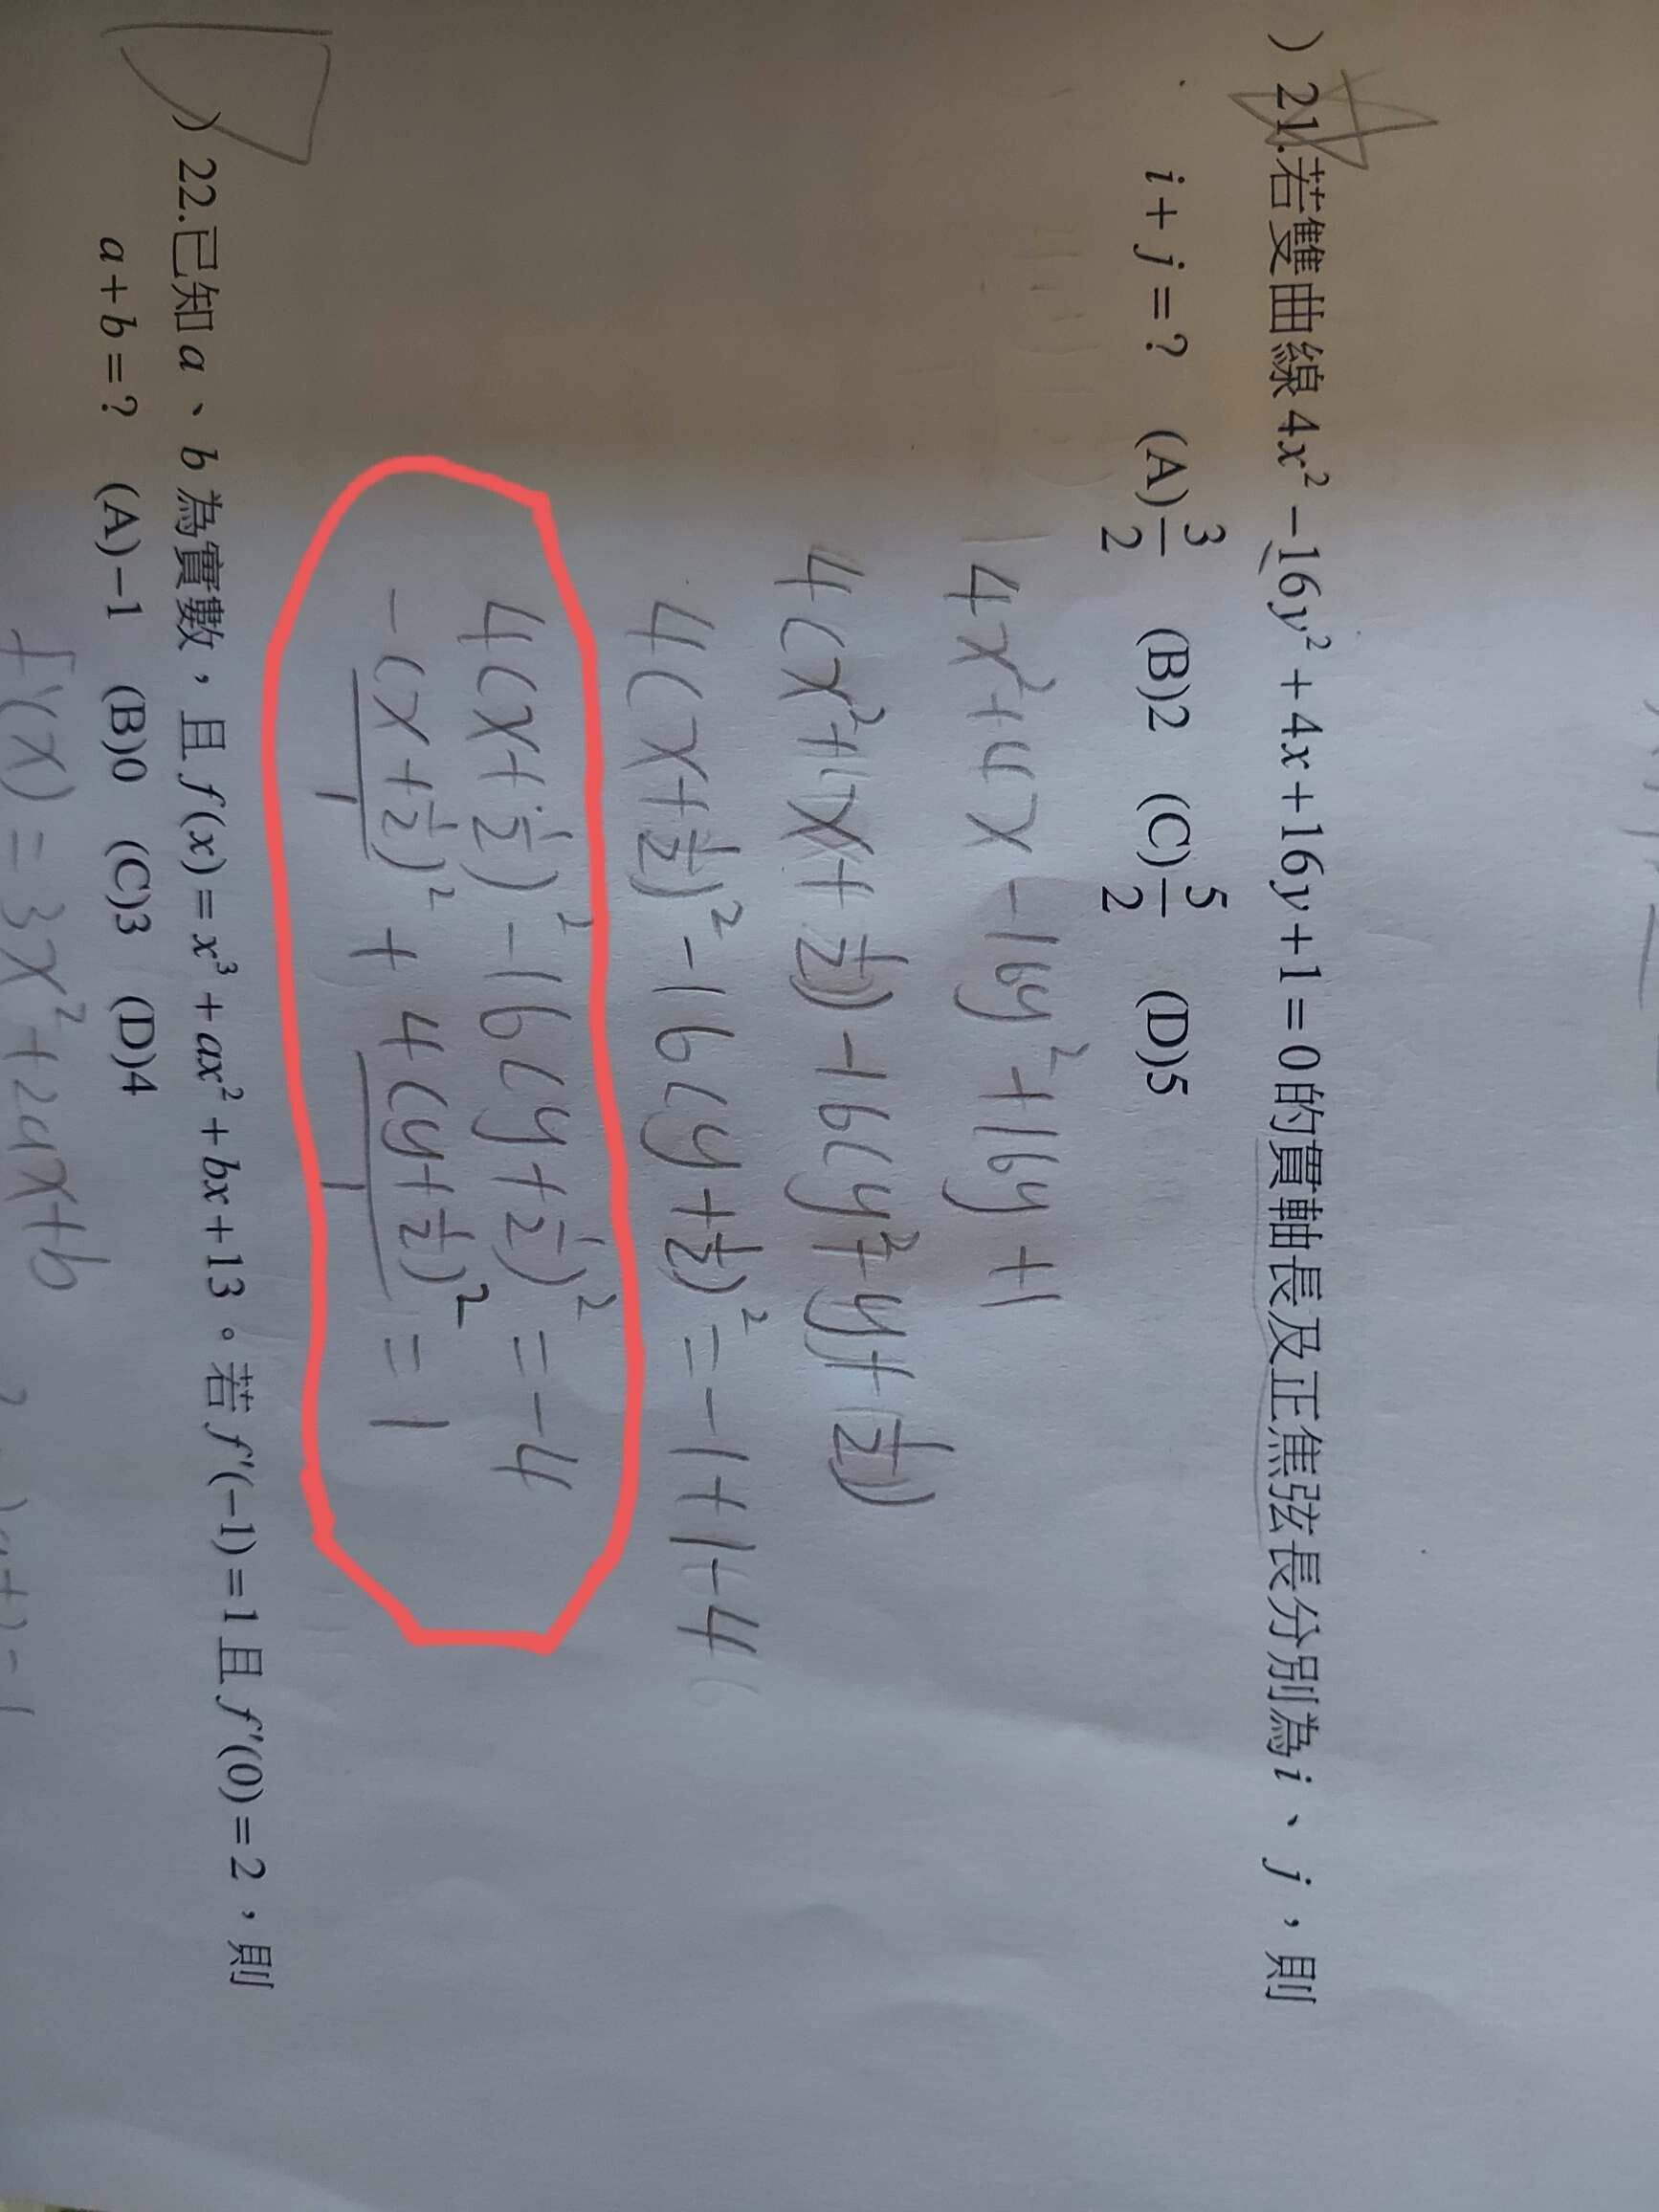 )21.若雙曲線4x²−16y²+4x+16y+1=0的貫軸長及正焦弦長分別為i、j，則
i+j=? (A)3/2 (B)2 (C)5/2 (D)5
4x²+4x-16y²+16y+1
4(x²+1x+1/2)-16(y²+y+1/2)
4(x+1/2)²-16(y+1/2)²=-1+1-4
4(x+1/2)²-16(y+1/2)²=-4
-(x+1/2)²/1+4(y+1/2)²/1=1
)22.已知a、b為實數，且f(x)=x³+ax²+bx+13。若f′(−1)=1且f′(0)=2，則
a+b=? (A)−1 (B)0 (C)3 (D)4
f'(x)=3x²+2ax+b